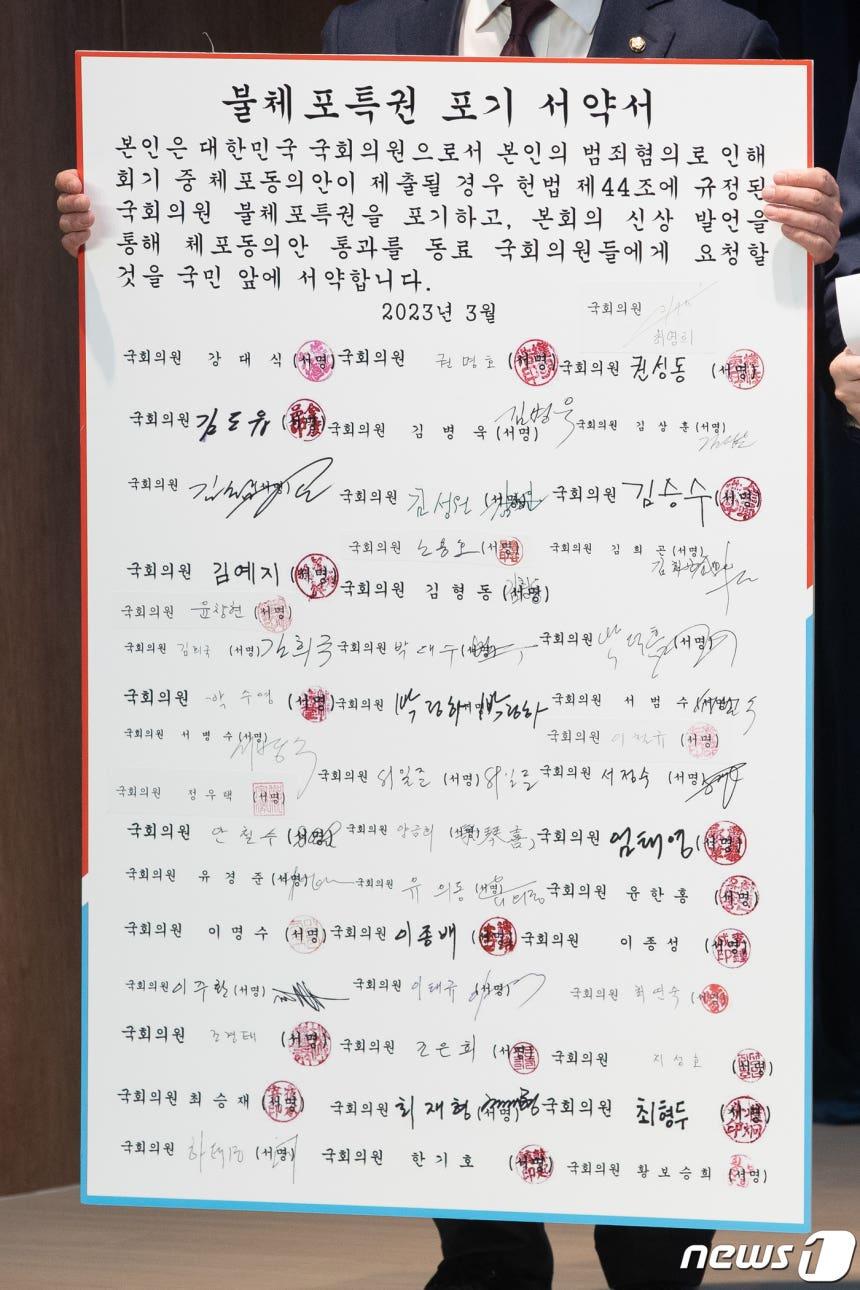 불체포특권 포기 서약서
본인은 대한민국 국회의원으로서 본인의 범죄혐의로 인해
회기 중 체포동의안이 제출될 경우 헌법 제44조에 규정된
국회의원 불체포특권을 포기하고, 본회의 신상 발언을
통해 체포동의안 통과를 동료 국회의원들에게 요청할
것을 국민 앞에 서약합니다.
2023년 3월
국회의원 최영희
국회의원 강대식 (서명) 국회의원 권명호 (서명) 국회의원 권성동 (서명)
국회의원 김도읍 (서명) 국회의원 김병욱 (서명) 김병욱 국회의원 김상훈 (서명)
국회의원 (서명) 국회의원 김성원 (서명) 국회의원 김승수 (서명)
국회의원 (서명) 국회의원 김희곤 (서명)
국회의원 김예지 (서명) 국회의원 김형동 (서명)
국회의원 윤창현 (서명)
국회의원 김희국 (서명) 김희국 국회의원 박대수 (서명) 국회의원 박덕흠 (서명)
국회의원 박수영 (서명) 국회의원 박정하 (서명) 박정하 국회의원 서범수 (서명)
국회의원 서병수 (서명) 국회의원 이철규 (서명)
국회의원 정우택 (서명) 국회의원 서일준 (서명) 서일준 국회의원 서정숙 (서명)
국회의원 안철수 (서명) 국회의원 양금희 (서명) 국회의원 엄태영 (서명)
국회의원 유경준 (서명) 국회의원 유의동 (서명) 국회의원 윤한홍 (서명)
국회의원 이명수 (서명) 국회의원 이종배 (서명) 국회의원 이종성 (서명)
국회의원 이주환 (서명) 국회의원 이태규 (서명) 국회의원 최연숙 (서명)
국회의원 조경태 (서명) 국회의원 조은희 (서명) 국회의원 지성호 (서명)
국회의원 최승재 (서명) 국회의원 최재형 (서명) 국회의원 최형두 (서명)
국회의원 하태경 (서명) 국회의원 한기호 (서명) 국회의원 황보승희 (서명)
news1